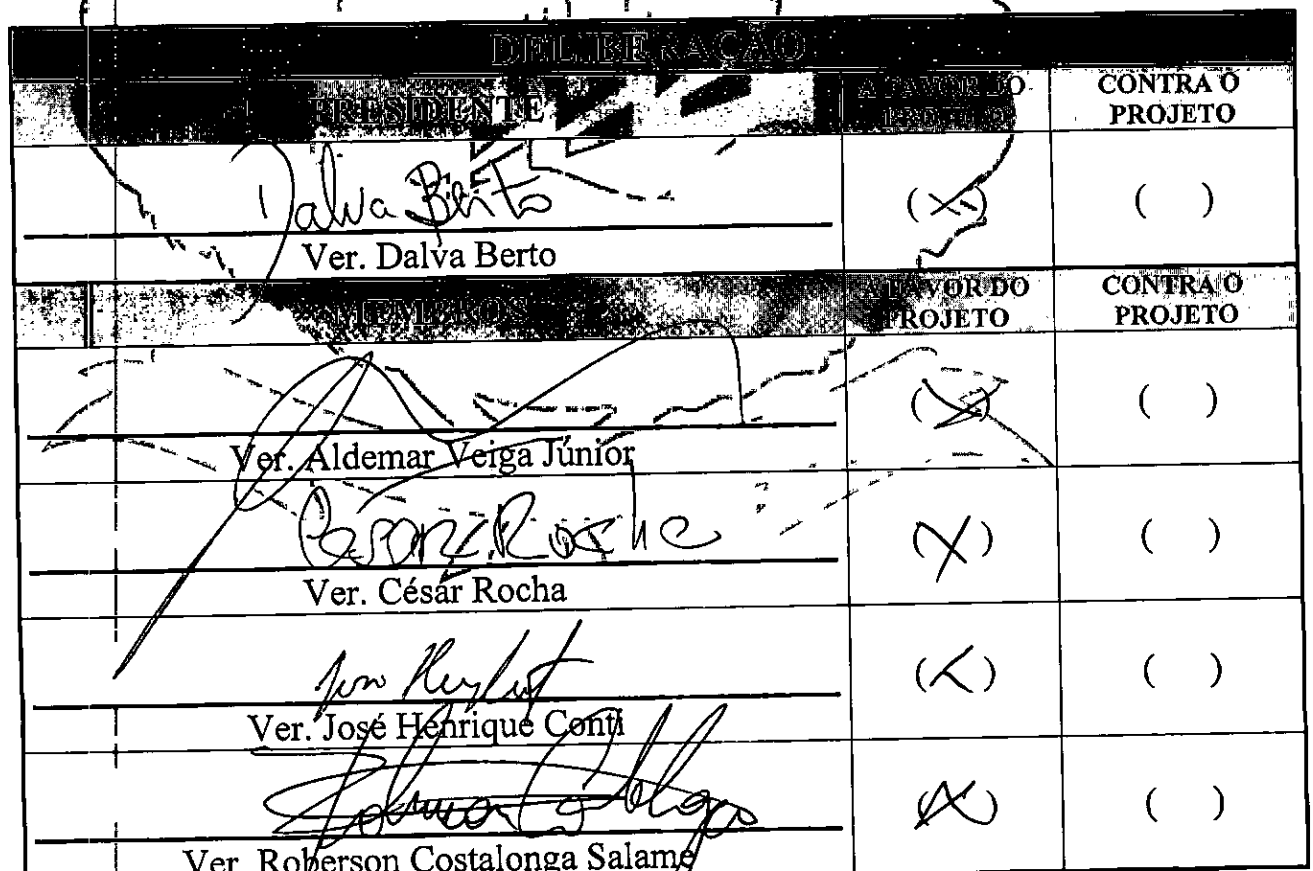 DELIBERAÇÃO
PRESIDENTE A FAVOR DO PROJETO CONTRA O PROJETO
Dalva Berto (X) ( )
Ver. Dalva Berto
MEMBROS A FAVOR DO PROJETO CONTRA O PROJETO
(X) ( )
Ver. Aldemar Veiga Júnior
Cesar Rocha (X) ( )
Ver. César Rocha
(X) ( )
Ver. José Henrique Conti
(X) ( )
Ver. Roberson Costalonga Salame